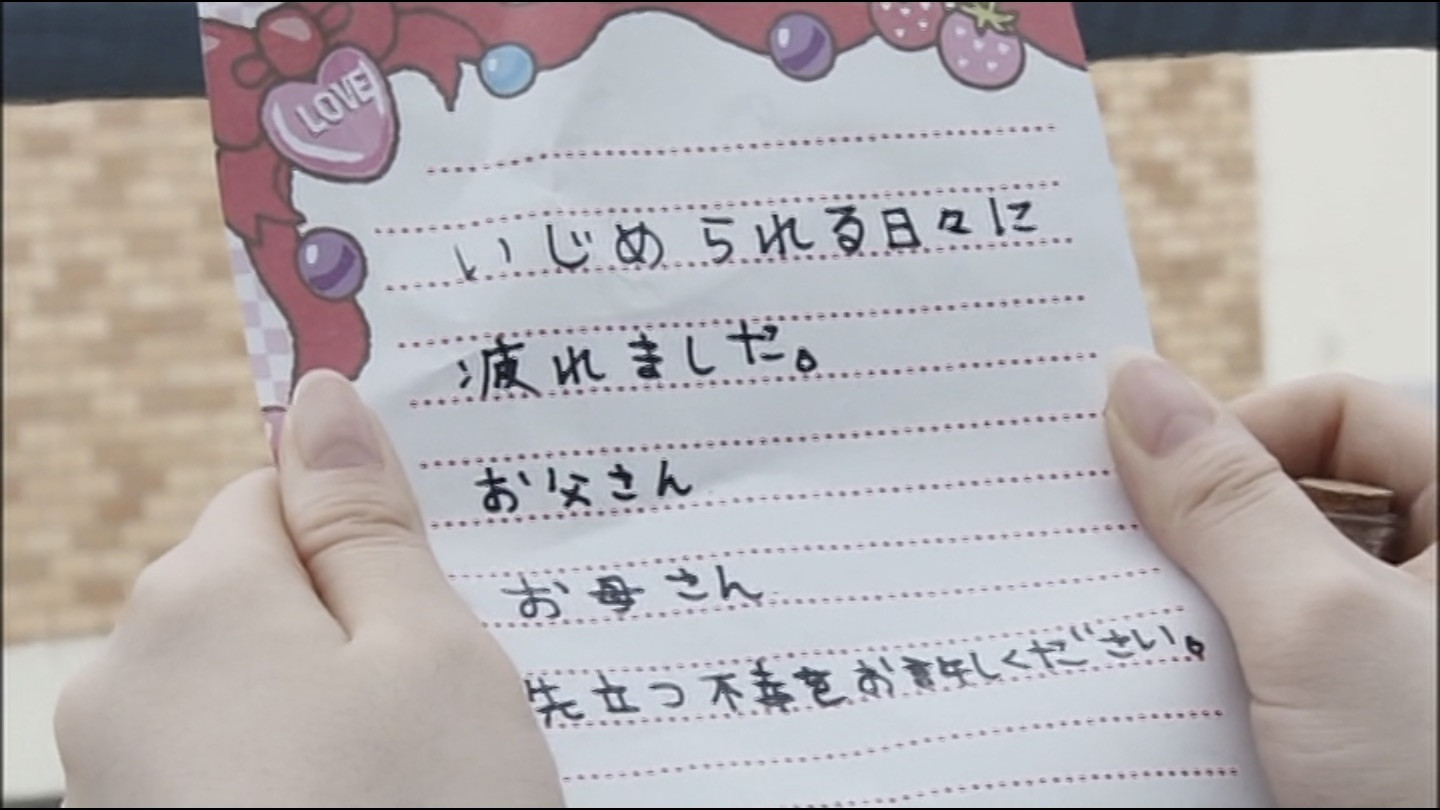 LOVE
いじめられる日々に
疲れました。
お父さん
お母さん
先立つ不幸をお許しください。